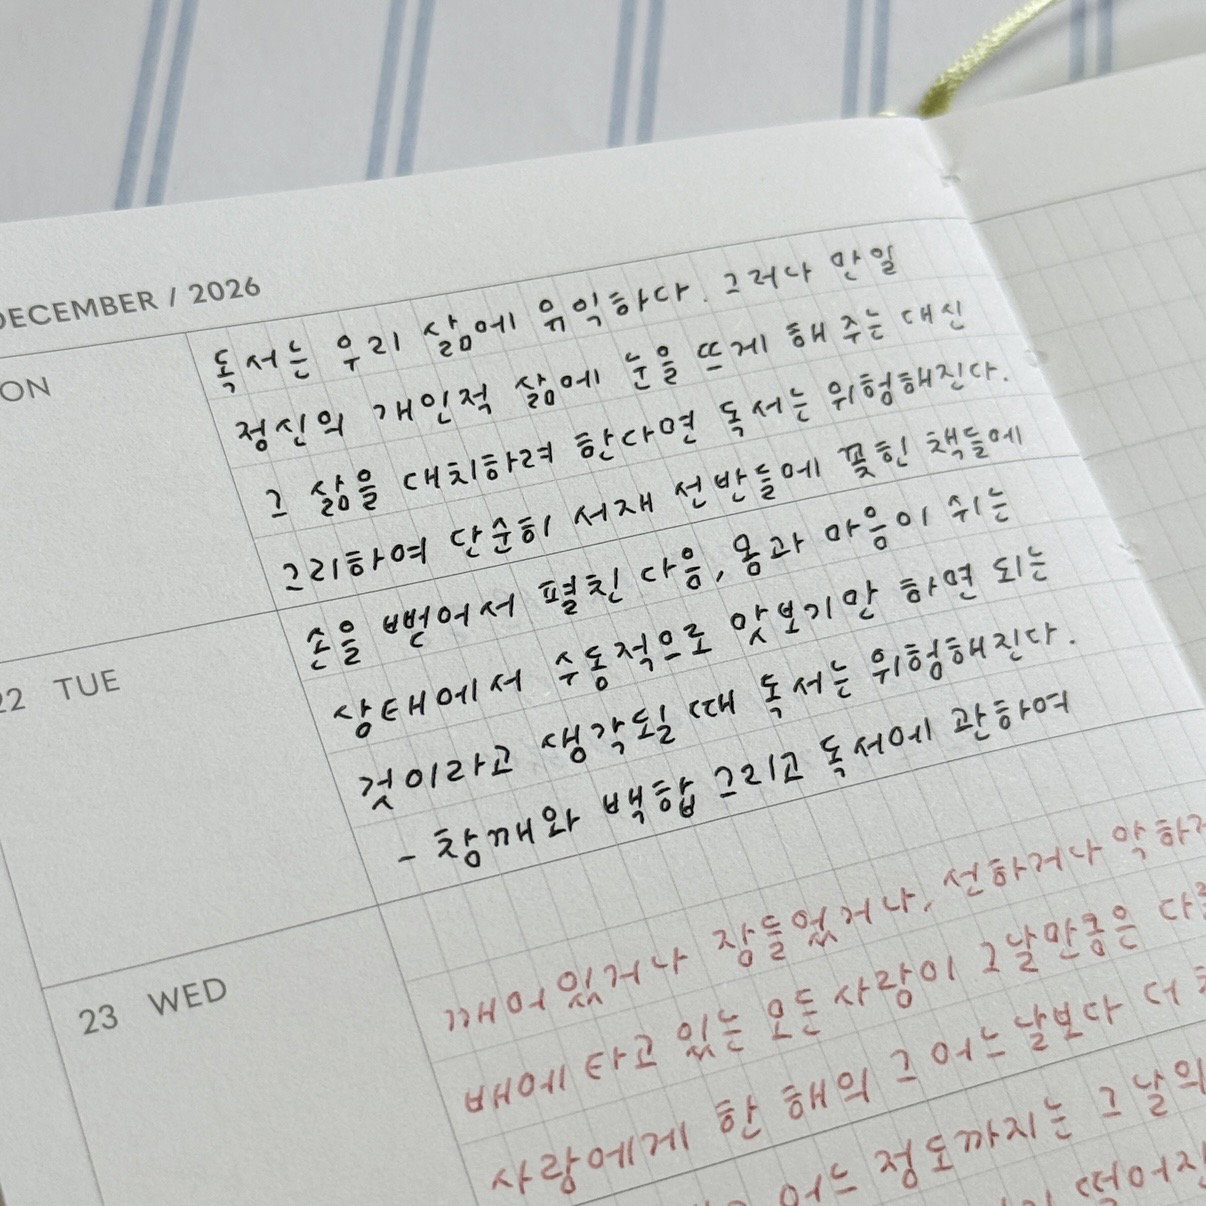 DECEMBER / 2026
ON
독서는 우리 삶에 유익하다. 그러나 만일
정신의 개인적 삶에 눈을 뜨게 해 주는 대신
그 삶을 대치하려 한다면 독서는 위험해진다.
그리하여 단순히 서재 선반들에 꽂힌 책들에
손을 뻗어서 펼친 다음, 몸과 마음이 쉬는
상태에서 수동적으로 맛보기만 하면 되는
것이라고 생각될 때 독서는 위험해진다.
- 참깨와 백합 그리고 독서에 관하여
22 TUE
23 WED
깨어 있거나 잠들었거나, 선하거나 악하거
배에 타고 있는 모든 사람이 그날만큼은
사람에게 한 해의 그 어느 날보다 더
어느 정도까지는 그 날의